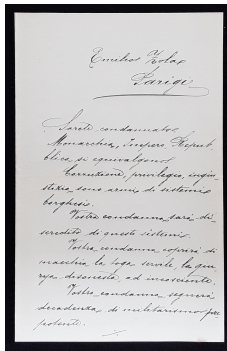 Emilio Zola
Parigi
Sarete condannato.
Monarchia, Impero, Repub=
blica, si equivalgono.
Corruzione, privilegio, ingiu=
stizia, sono armi di sistemi
borghesi.
Vostra condanna sarà di=
scredito di questo sistema.
Vostra condanna coprirà di
macchia la toga servile, la giu
ria disonesta, od incosciente.
Vostra condanna segnerà
decadenza di militarismo pre
potente.